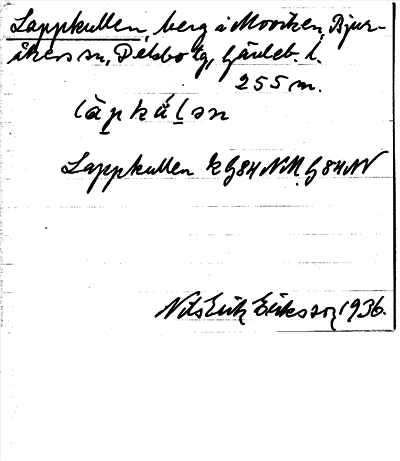 Lappkullen, berg å Moviken, Bjur-
åkers sn, Delsbo tg, Gävleb. l.
255 m.
làpkálsn
Lappkullen k G84 NM. G84N
Nils Erik Eriksson 1936.